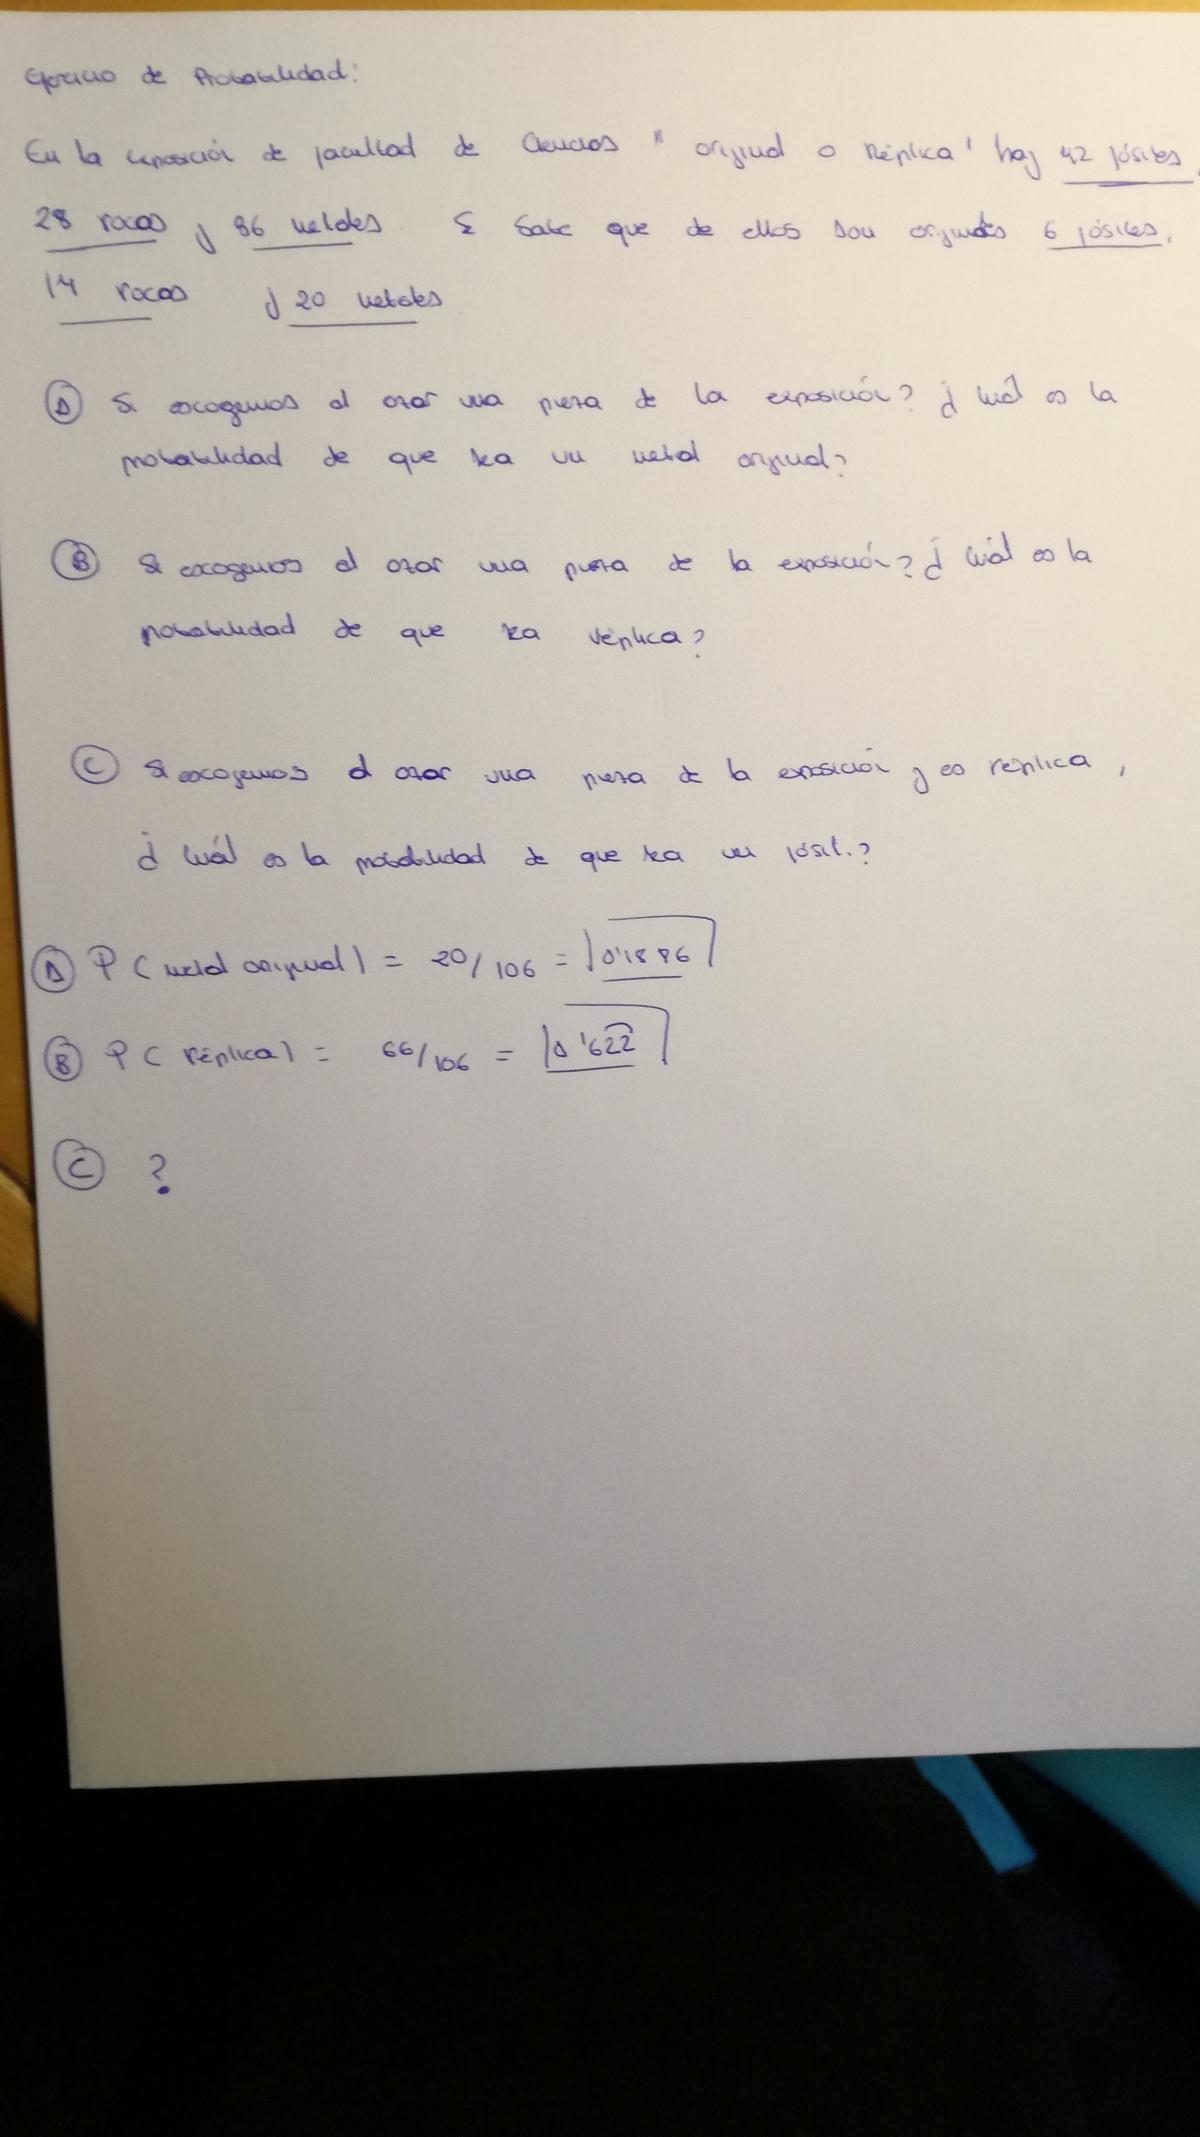 Ejercicio de Probabilidad:
En la exposición de facultad de Ciencias "original o Réplica" hay 42 fósiles,
28 rocas y 36 metales. Se sabe que de ellos son originales 6 fósiles,
14 rocas y 20 metales
A Si escogemos al azar una pieza de la exposición? ¿Cuál es la
probabilidad de que sea un metal original?
B Si escogemos al azar una pieza de la exposición? ¿Cuál es la
probabilidad de que sea réplica?
C Si escogemos al azar una pieza de la exposición y es réplica,
¿Cuál es la probabilidad de que sea un fósil.?
A P (metal original) = 20/106 = 0'1886
B P (réplica) = 66/106 = 0'622
C ?